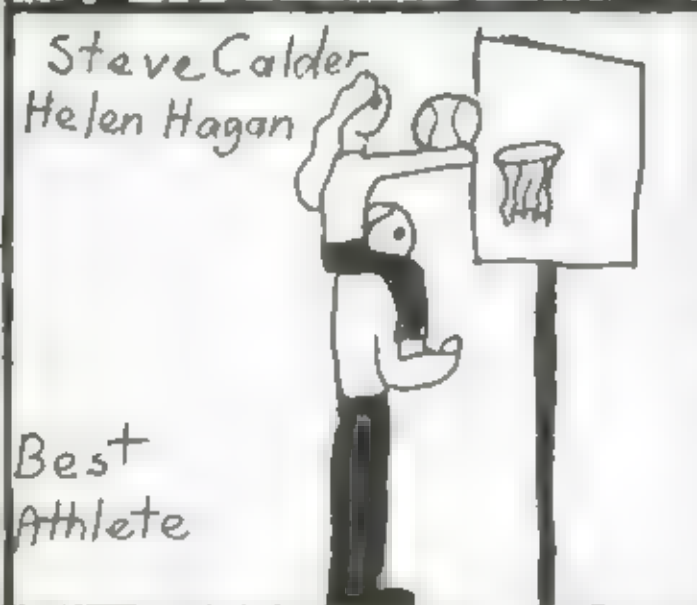 Steve Calder
Helen Hagan
Best
Athlete